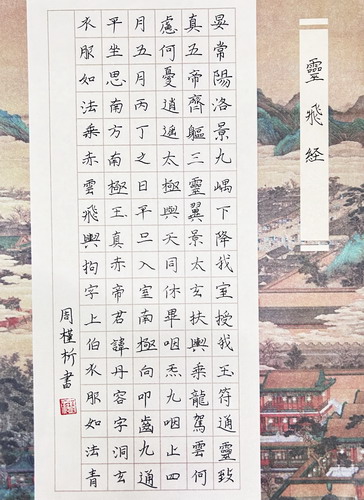 靈飛経
晏常陽洛景九嵎下降我室授我玉符通靈致
真五帝齊軀三靈翼景太玄扶輿乘龍駕雲何
慮何憂逍遙太極與天同休畢咽炁九咽止四
月五月丙丁之日早旦入室南極向叩齒九通
平坐思南方南極王真赤帝君諱丹容字洞玄
衣服如法乘赤雲飛輿拘字上伯衣服如法青
周槿析書